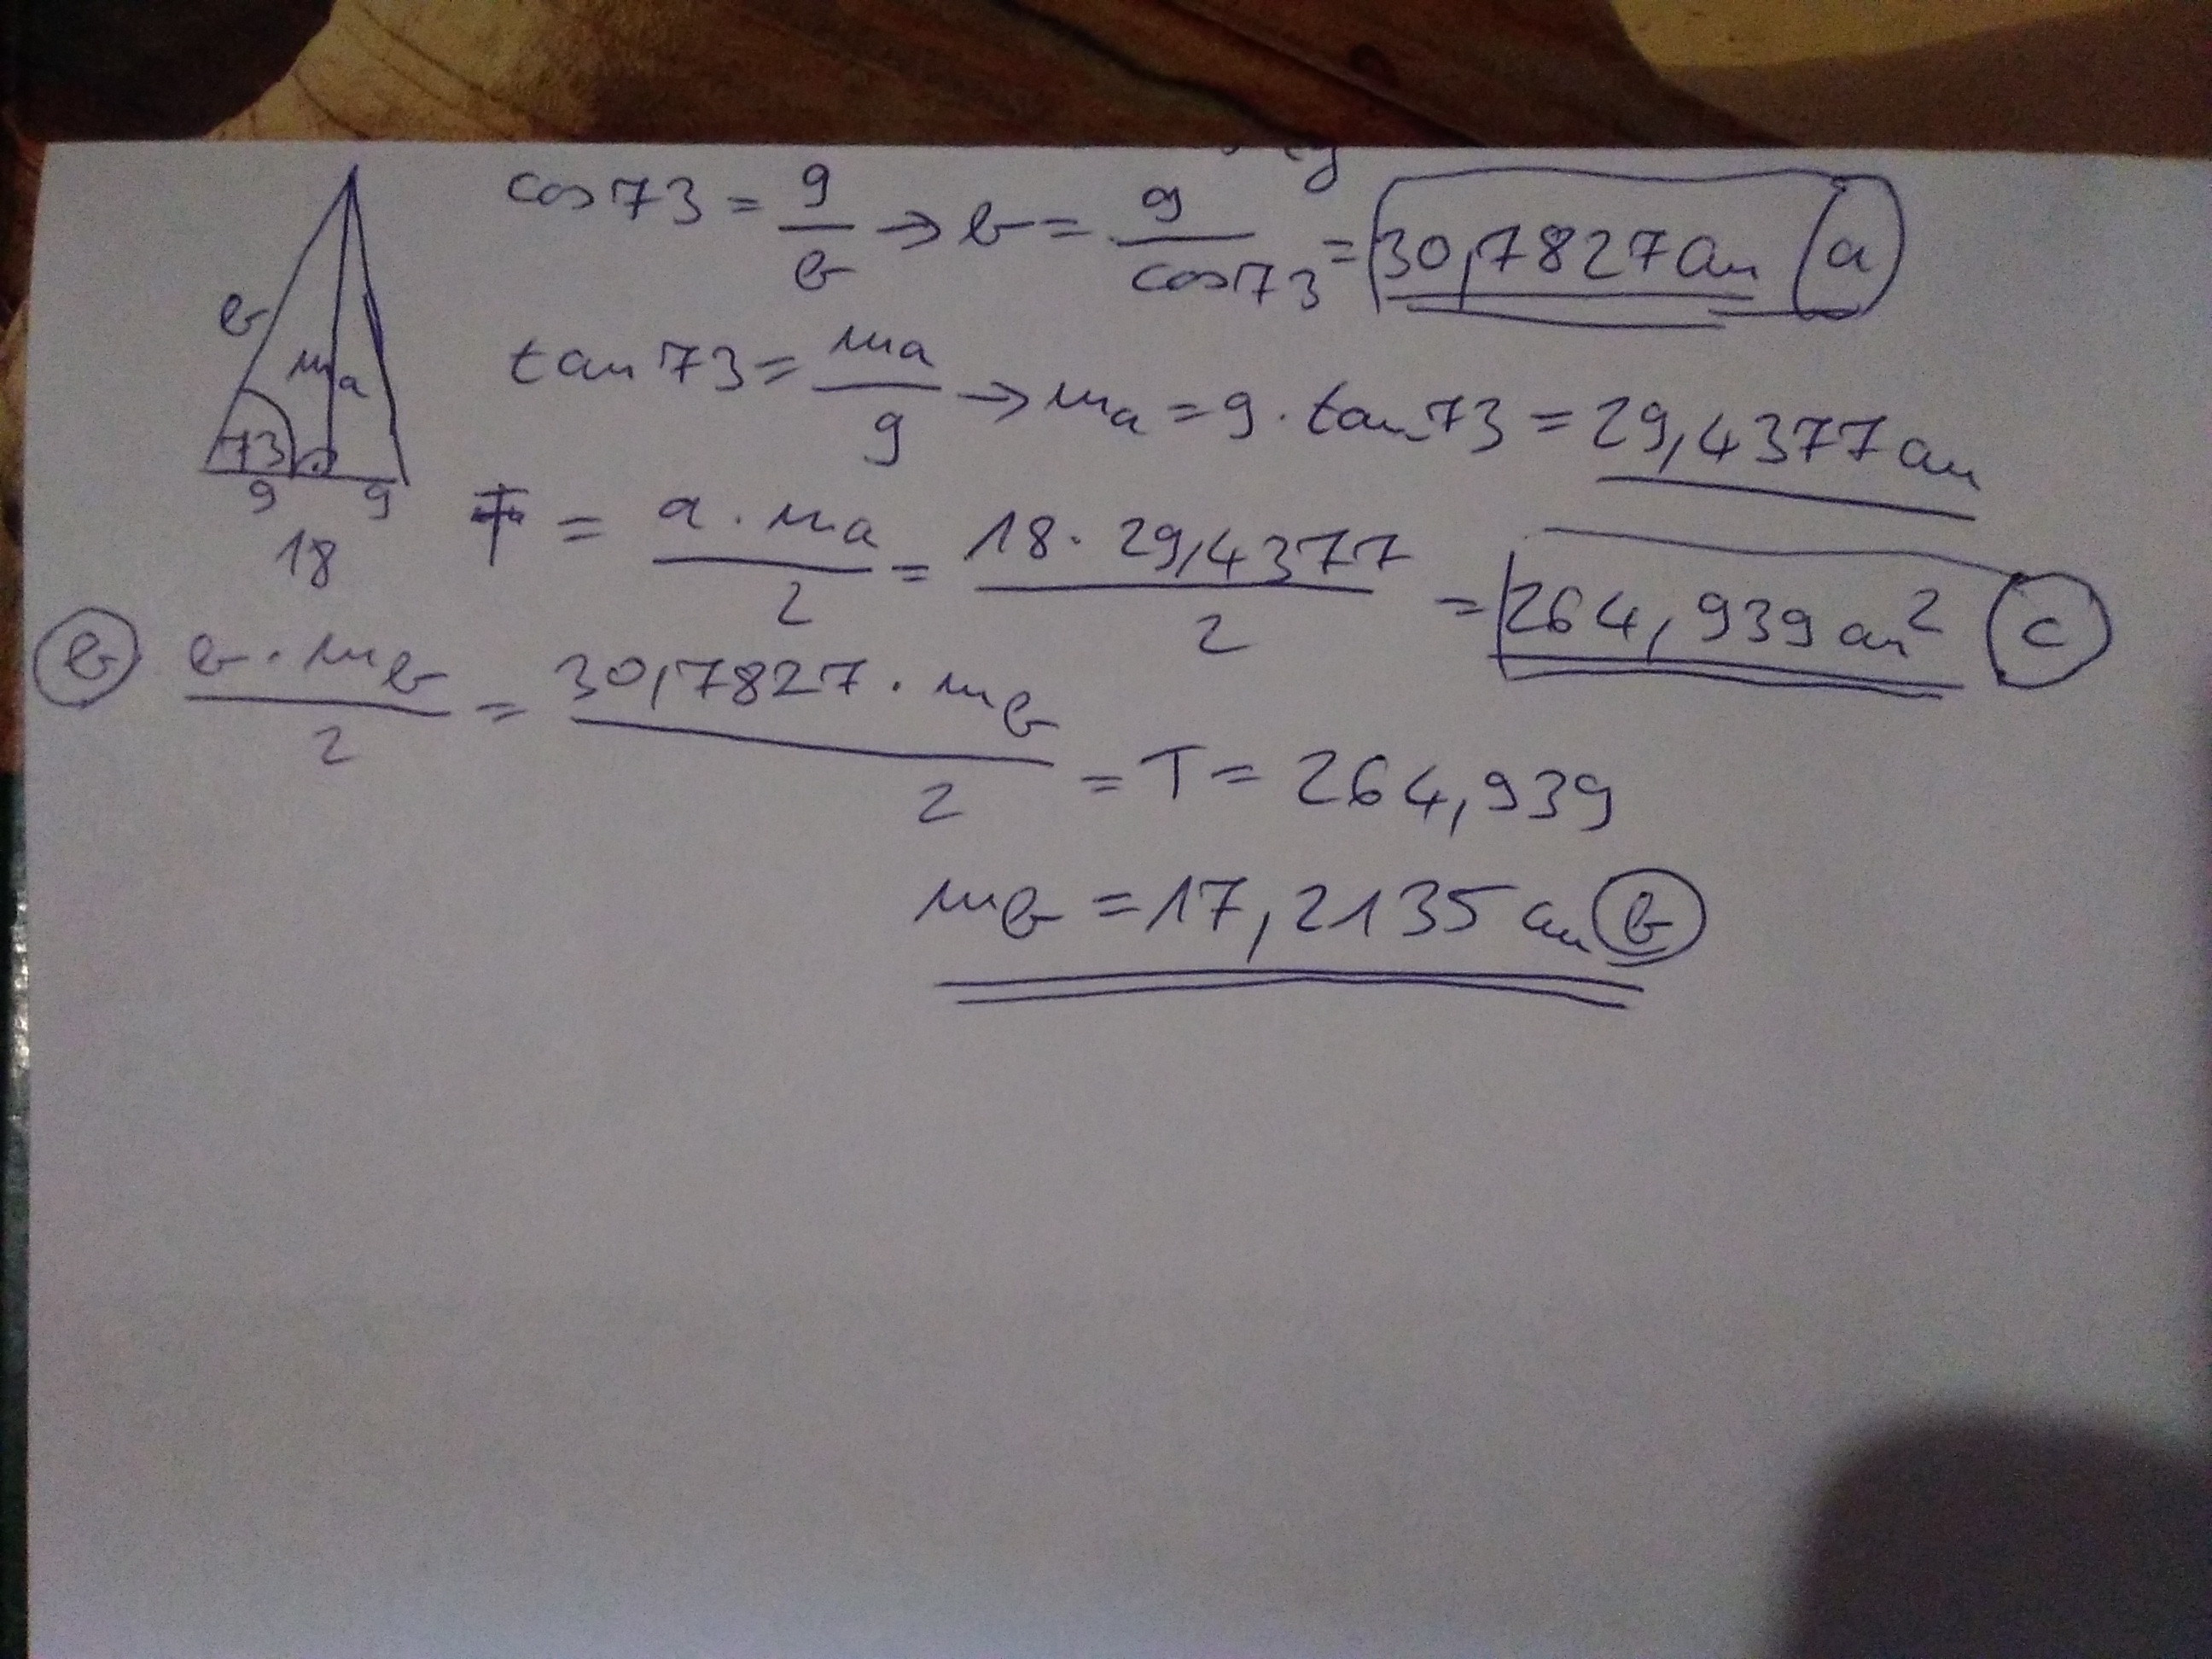 cos73 = 9/b → b = 9/cos73 = 30,7827cm (a)
b
ma
73
9 9
18
tan73 = ma/9 → ma = 9 · tan73 = 29,4377cm
T = a · ma/2 = 18 · 29,4377/2 = 264,939cm² (c)
(b) b · mb/2 = 30,7827 · mb/2 = T = 264,939
mb = 17,2135cm (b)